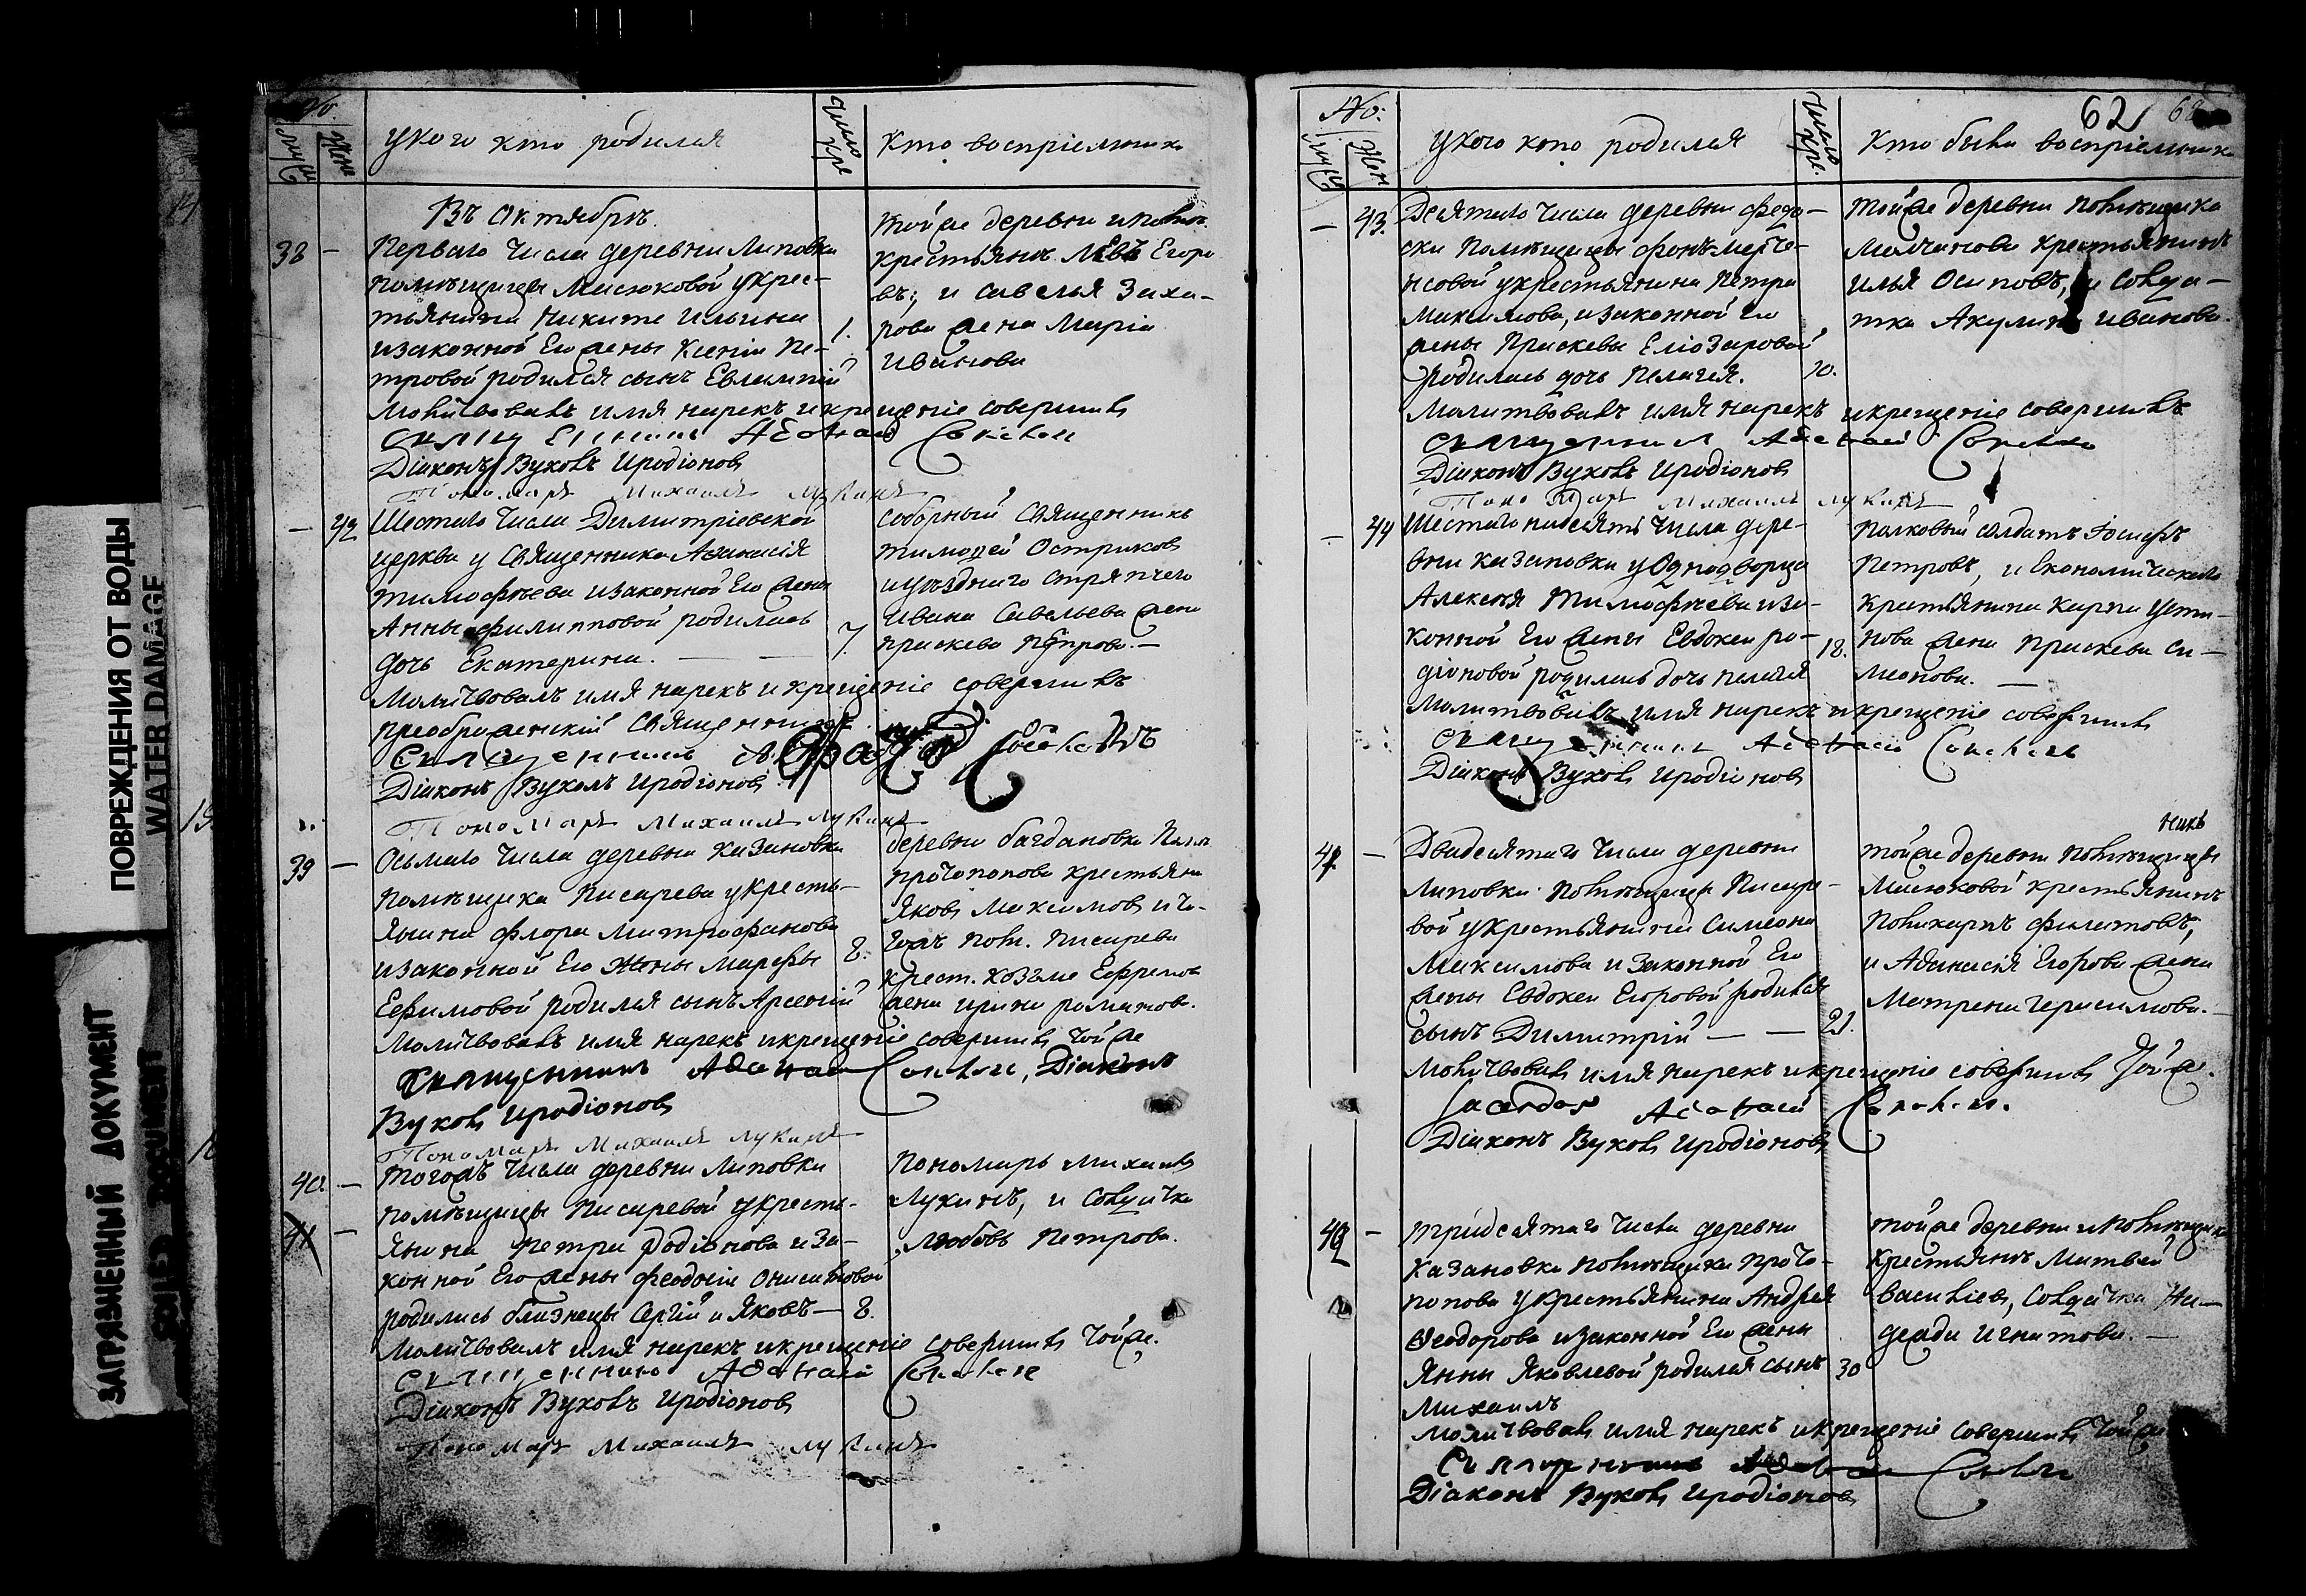 ПОВРЕЖДЕНИЯ ОТ ВОДЫ
WATER DAMAGE
ЗАГРЯЗНЕННЫЙ ДОКУМЕНТ
SOILED DOCUMENT
№.
муж
жен
У кого кто родился
число кре
Кто восприемники
Въ Октябрѣ.
38 —
Перваго числа деревни Липовки
помѣщицы Мисюковой у крес-
тьянина Никите Ильина
и законной Его жены Ксеніи Пе-
тровой родился сынъ Евлампій
1.
тойже деревни и помѣщ.
крестьянъ Левъ Егоро
въ; и Савелья Заха-
рова жена Марія
Иванова
Молитвовалъ имя нарекъ и крещеніе совершилъ
Діаконъ Вуколъ Иродіоновъ
Пономарь Михаилъ Лукинъ
— 42
Шестаго числа Димитріевской
церкви у Священника Афанасія
Тимофѣева и законной Его жены
Анны Филипповой родилась
дочь Екатерина. —
7.
Соборный Священникъ
Тимофей Остриков
и уѣзднаго Стряпчего
Ивана Савельева жена
Праскева Петрова. —
Молитвовалъ имя нарекъ и крещеніе совершилъ
преображенскій Священникъ
Священникъ
Діаконъ Вуколъ Иродіоновъ
Пономарь Михаилъ Лукинъ
39 —
Осьмаго числа деревни Казановки
помѣщика Писарева у кресть-
янина Флора Митрофанова
и законной Его жены Марфы
Ефимовой родился сынъ Арсений
8.
деревни Багдановки Пом.
Протопопова крестьяни
Яковъ Максимовъ и то-
гожъ пом. Писарева
крест. Козьме Ефремов
жена Ирина
Молитвовалъ имя нарекъ и крещеніе совершилъ тойже
Священникъ Діаконъ
Вуколъ Иродіоновъ
Пономарь Михаилъ Лукинъ
40. —
41 —
Тогожъ числа деревни Липовки
помѣщицы Писаревой у кресть-
янина Петра Родіонова и за-
конной Его жены Феодосіи
родились близнецы Сергій и Яковъ — 8.
Пономарь Михаилъ
Лукинъ, и Солдатка
Любовь Петрова.
Молитвовалъ имя нарекъ и крещеніе совершилъ тойже.
Священникъ
Діаконъ Вуколъ Иродіоновъ
Пономарь Михаилъ Лукинъ
62
№.
муж
жен
У кого кто родился
число кре.
Кто были восприемники
— 43.
Десятаго числа деревни Федо-
ски Помѣщицы
у крестьянина Петра
Максимова, и законной Его
жены Праскевы Еліозаровой
родилась дочь Пелагея.
10.
тойже деревни помѣщика
Молчанова крестьянинъ
Илья Осиповъ, и Солда-
тка Акулина Иванова.
Молитвовалъ имя нарекъ и крещеніе совершилъ
Священникъ
Діаконъ Вуколъ Иродіоновъ
Пономарь Михаилъ Лукинъ
— 44
Шестагонадесять числа дере-
вни Казановки у Однодворца
Алексея Тимофѣева и за-
конной Его жены Евдокеи Ро-
діоновой родилась дочь Пелагея
18.
Полковый солдатъ Іосифъ
Петровъ, и Економическаго
крестьянина Карпа Усти-
нова жена Праскева Си-
меонова. —
Молитвовалъ имя нарекъ и крещеніе совершилъ
Священникъ
Діаконъ Вуколъ Иродіоновъ
Двадесятаго числа деревни
Липовки помѣщицы Писаре-
вой у крестьянина Симеона
Максимова и законной Его
жены Евдокеи Егоровой родился
сынъ Димитрій — — 21.
тойже деревни помѣщицы
Мисюковой крестьянинъ
Поликарпъ Филатовъ,
и Афанасія Егорова жена
Матрена Герасимова. —
Молитвовалъ имя нарекъ и крещеніе совершилъ тойже.
Sacerdos
Діаконъ Вуколъ Иродіоновъ
Тридсятаго числа деревни
Казановки помѣщика Прото-
попова у крестьянина Андрея
Ѳеодорова и законной Его жены
Анны Яковлевой родился сынъ
Михаилъ
30
тойже деревни и помѣщика
крестьянъ Матвей
Васильевъ, Солдатка На-
дежда Игнатова. —
Молитвовалъ имя нарекъ и крещеніе совершилъ тойже
Священникъ
Діаконъ Вуколъ Иродіоновъ